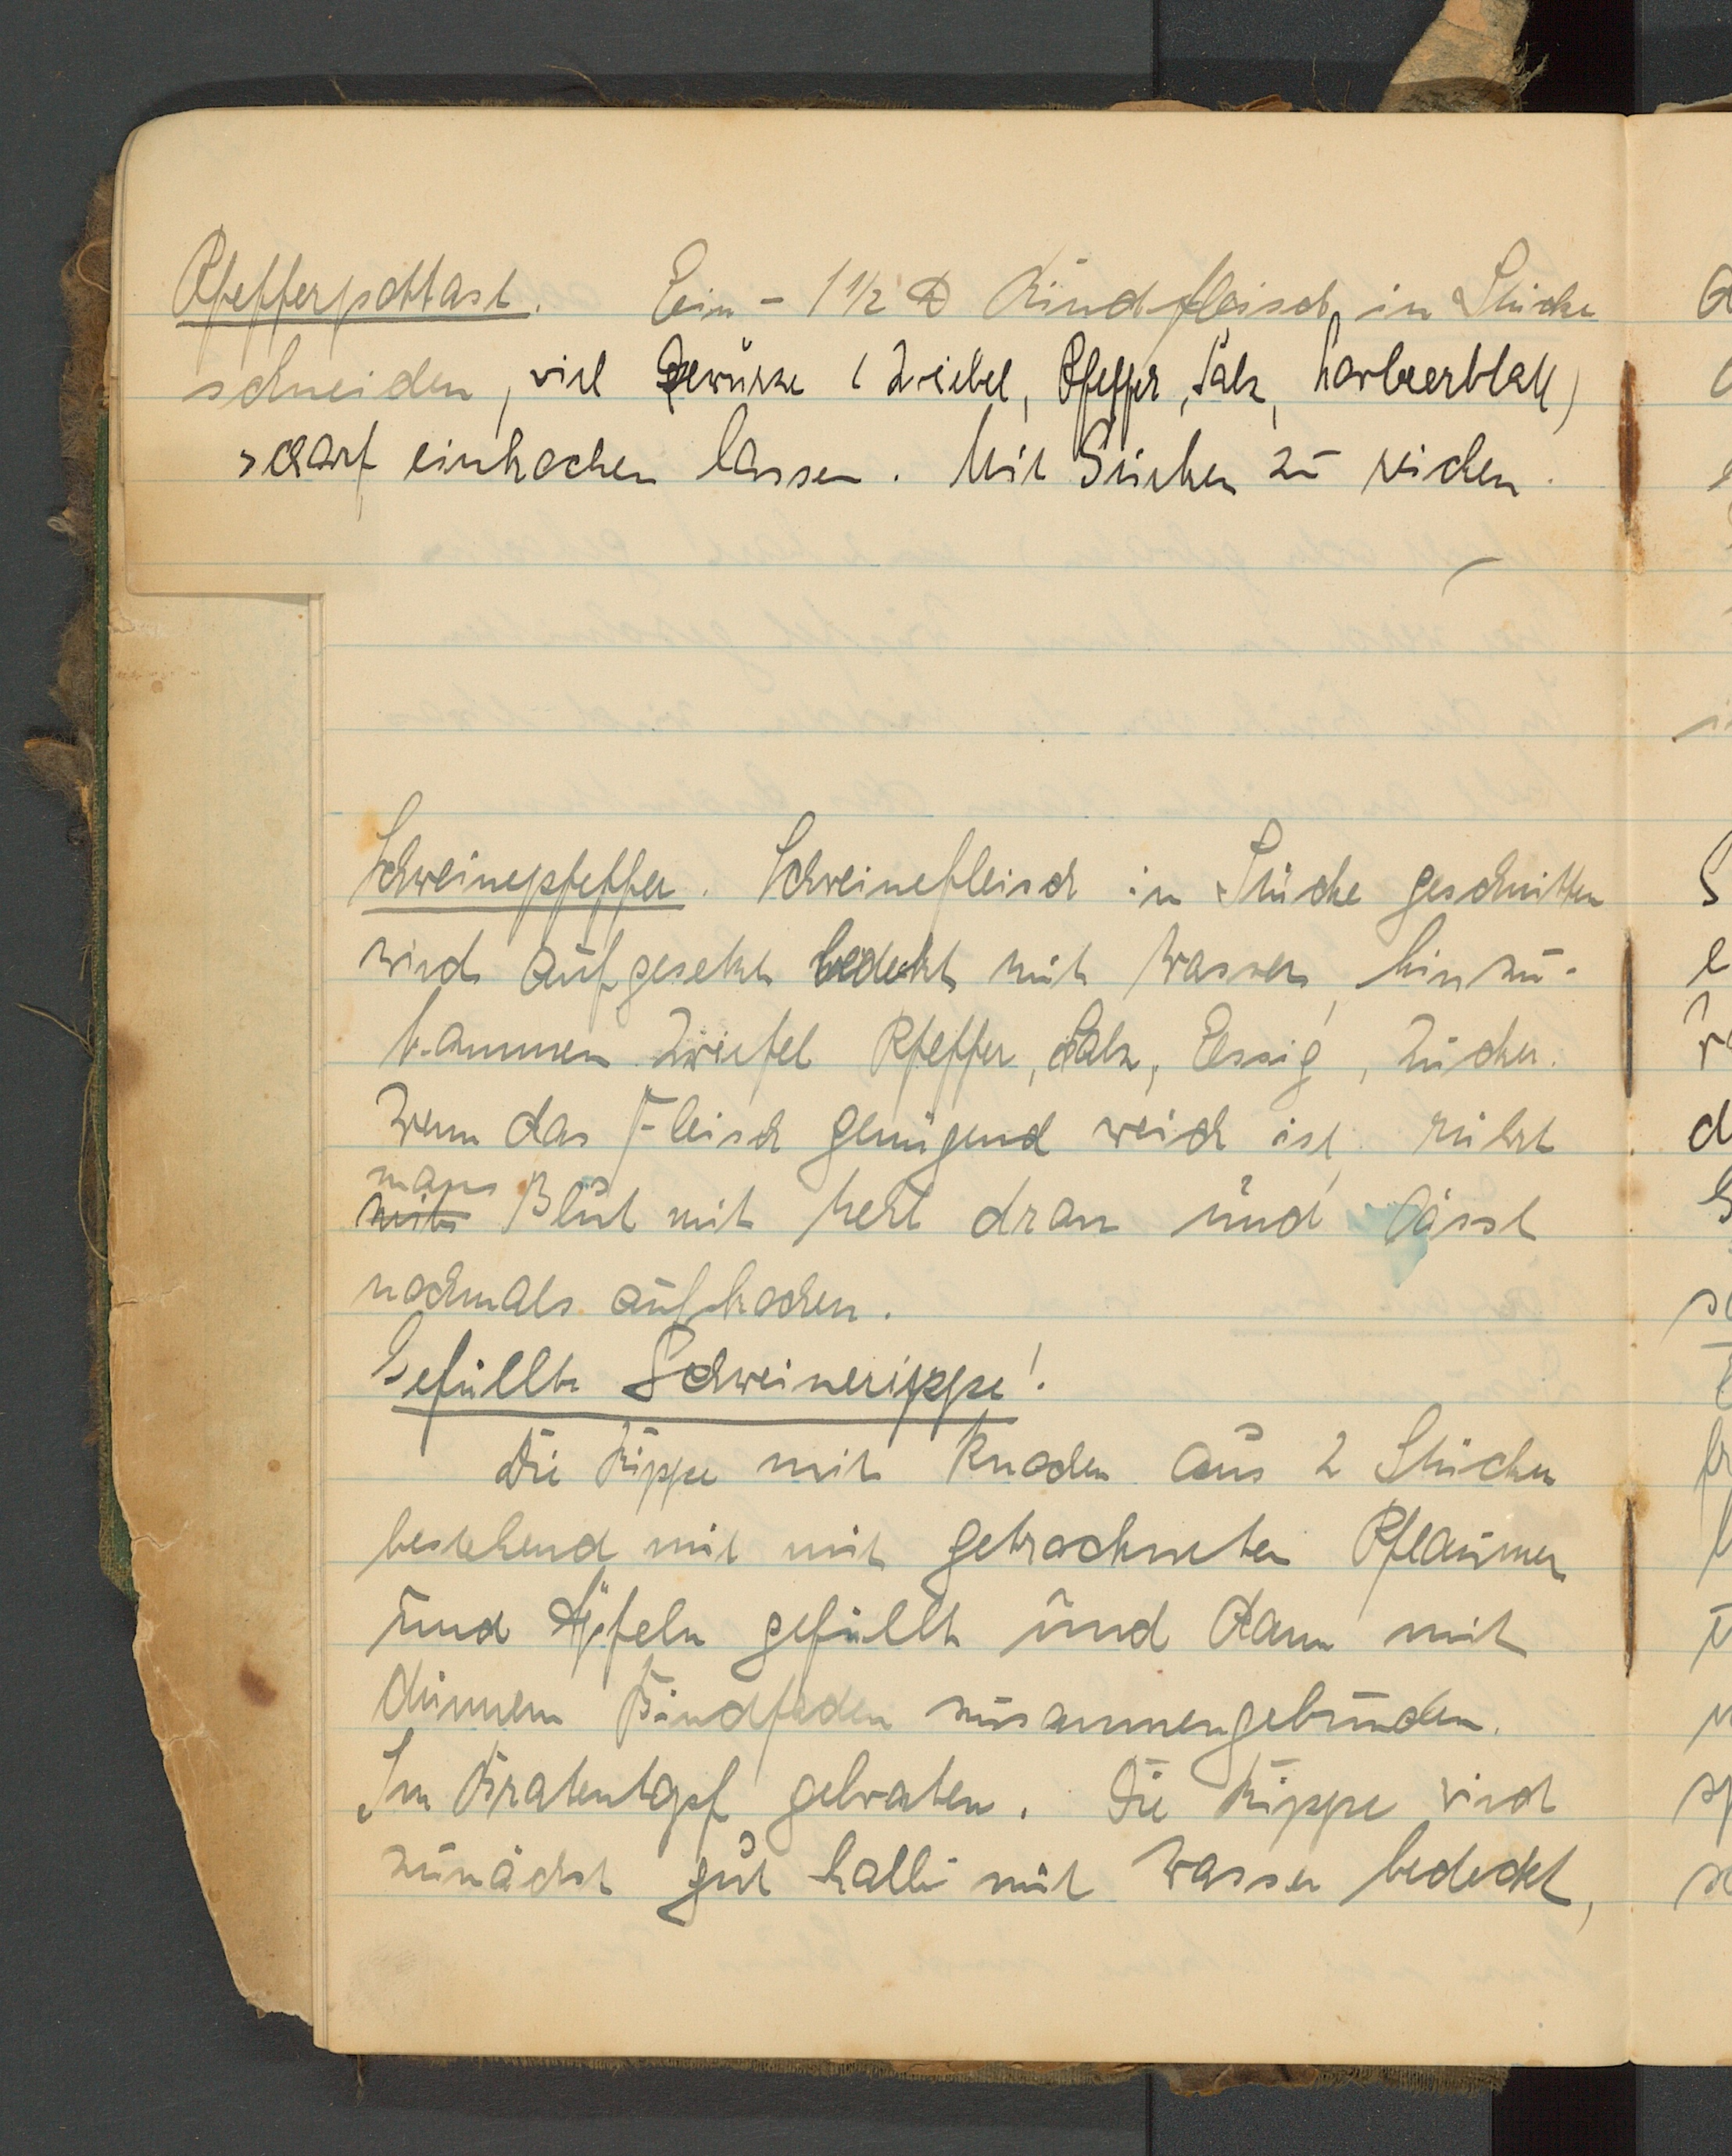 Pfefferpottast. Ein - 1 1/2 ℔ Rindfleisch in Stücke
schneiden, viel Gewürze (Zwiebel, Pfeffer, Salz, Lorbeerblatt)
scharf einkochen lassen. Mit Gurken zu reichen.
Schweinepfeffer. Schweinefleisch in Stücke geschnitten
wird aufgesetzt bedeckt mit Wasser, hinzu-
kammen Zwiefel Pfeffer, Salz, Essig, Zucker.
Wenn das Fleisch genügend weich ist, rührt
man
mit Blut mit Mehl dran und lässt
nochmals aufkochen.
Gefüllte Schweinerippe!
Die Rippe mit Knochen aus 2 Stücken
bestehend mit mit getrockneten Pflaumen
und Äpfeln gefüllt und dann mit
dünnem Bindfaden zusammengebunden.
Im Bratentopf gebraten. Die Rippe wird
zunächst gut halb mit Wasser bedeckt,